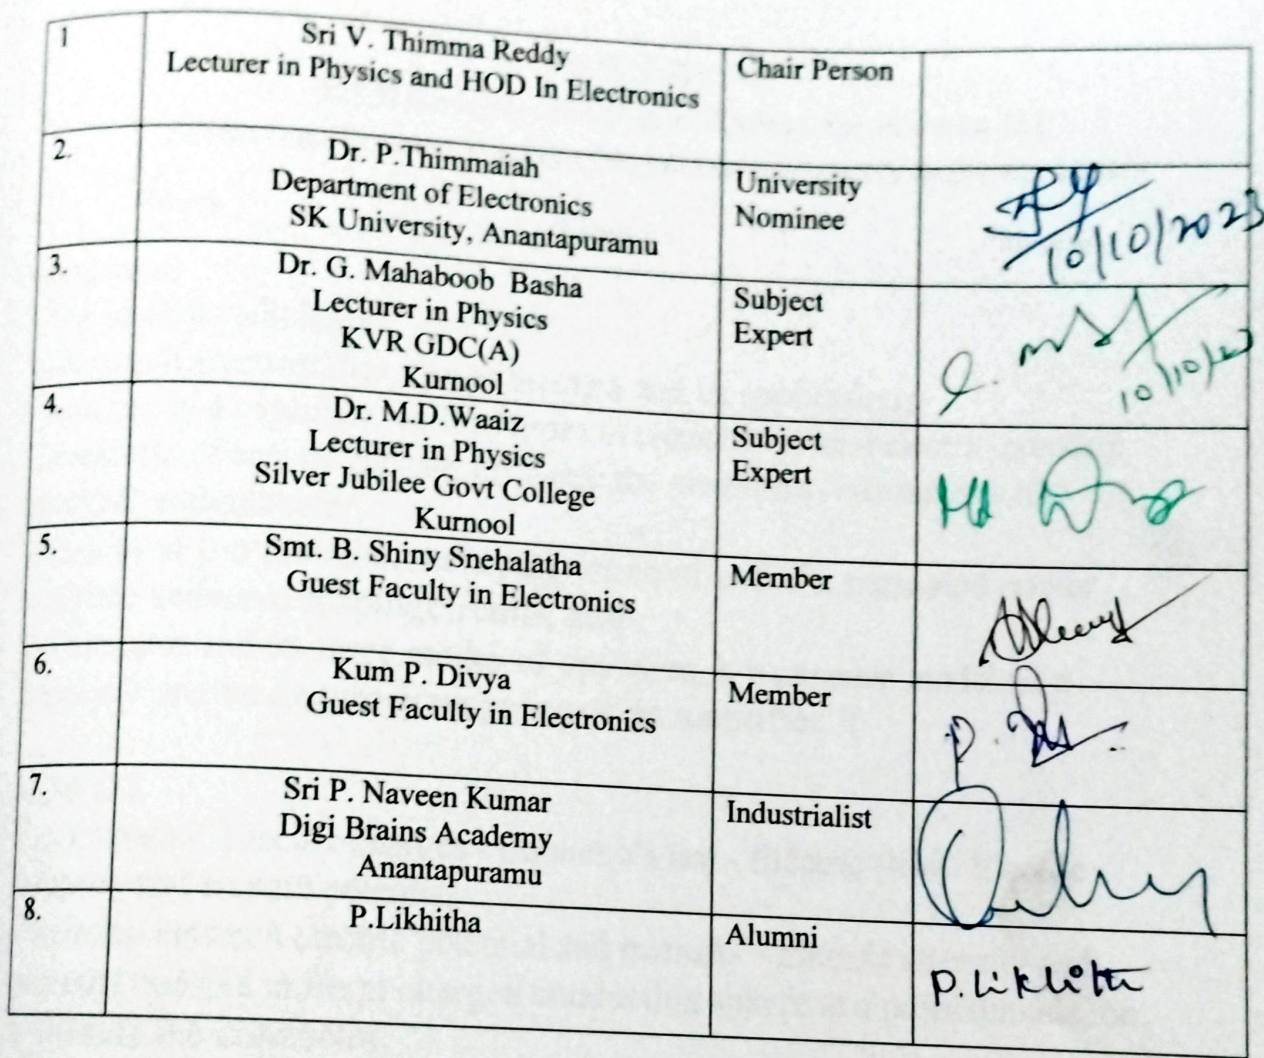 1
Sri V. Thimma Reddy
Lecturer in Physics and HOD In Electronics
Chair Person
2.
Dr. P.Thimmaiah
Department of Electronics
SK University, Anantapuramu
University
Nominee
10/10/2023
3.
Dr. G. Mahaboob Basha
Lecturer in Physics
KVR GDC(A)
Kurnool
Subject
Expert
10/10/23
4.
Dr. M.D.Waaiz
Lecturer in Physics
Silver Jubilee Govt College
Kurnool
Subject
Expert
5.
Smt. B. Shiny Snehalatha
Guest Faculty in Electronics
Member
6.
Kum P. Divya
Guest Faculty in Electronics
Member
7.
Sri P. Naveen Kumar
Digi Brains Academy
Anantapuramu
Industrialist
8.
P.Likhitha
Alumni
P.Likhitha